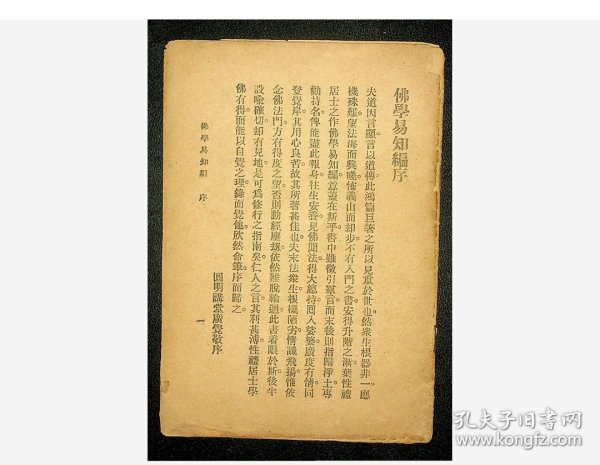 佛學易知編序
夫道因言顯言以道傳此鴻篇巨著之所以見重於世也然衆生根器非一應
機殊難望法海而興嗟怖義山而却步不有入門之書安得升階之漸葉性禮
居士之作佛學易知編意蓋在斯乎書中雖徵引羣言而末後則指歸淨土專
勸持名俾能盡此報身往生安養見佛聞法得大總持囘入娑婆廣度有情同
登覺岸其用心良苦故其所著甚佳也夫末法衆生根機陋劣情識飛揚惟依
念佛法門方有得度之望否則動經塵劫依然難脫輪迴此書着眼於斯後半
設喩確切却有見地是可爲修行之指南矣仁人之言其利甚溥性禮居士學
佛有得而能以自覺之理錄而覺他欣然命筆序而歸之
圓明講堂廣覺敬序
佛學易知編 序
一
孔夫子旧书网
www.kongfz.com